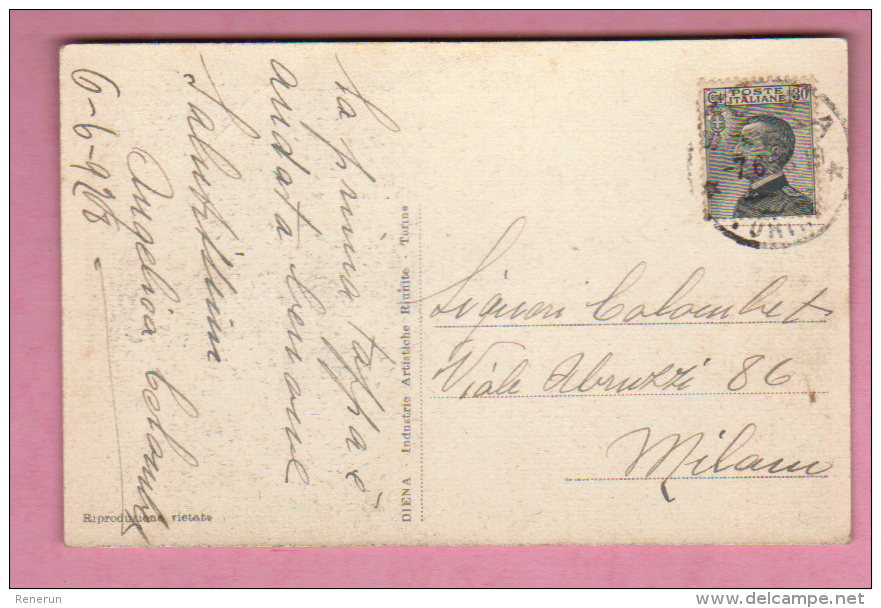 La prima tappa è
andata benone
Salutissimi
Angelica Colombet
6-6-928
Cent POSTE 30
ITALIANE
-7.6
TORINO
Signori Colombet
Viale Abruzzi 86
Milano
DIENA - Industrie Artistiche Riunite - Torino
Riproduzione vietata
Renerun
delcampe.net